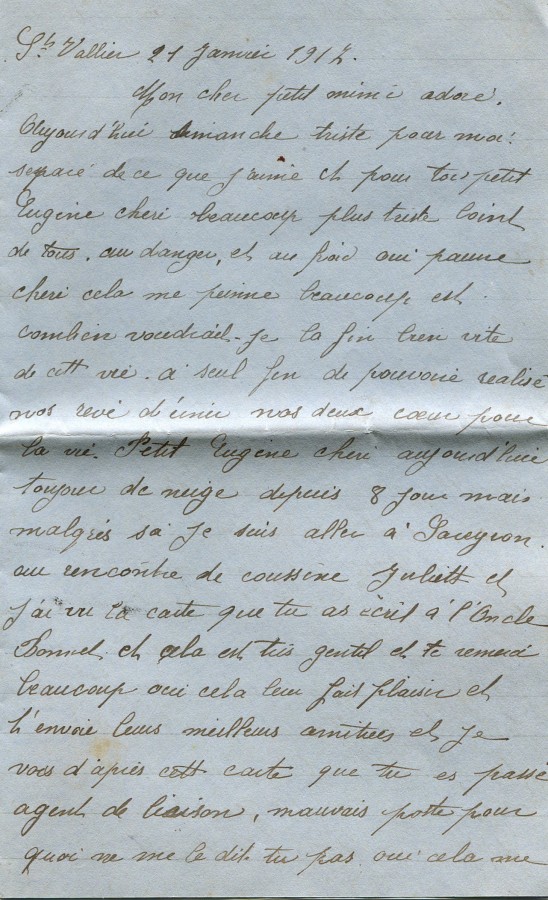 St Vallier 21 Janvier 1917.
Mon cher petit mimi adoré.
Aujourd'hui dimanche triste pour moi.
separé de ce que j'aime et pour toi petit
Eugène cheri beaucoup plus triste loint
de tous. au danger, et au froid oui pauvre
cheri cela me peinne beaucoup est
combien voudrait-je la fin bien vite
de cett vie. a seul fin de pouvoir realisé
nos revé d'unir nos deux cœur pour
la vie. Petit Eugène cheri aujourd'hui
toujour de neige depuis 8 jour mais
malgrés sa je suis aller à
au rencontre de coussine Juliett et
j'ai vu la carte que tu as écrit à l'Oncle
Bonnet et cela est tris gentil et te remerci
beaucoup oui cela leur fait plaisir et
t'envoie leurs meilleurs amitiees et je
vois d'apres cett carte que tu es passé
agent de liaison, mauvais poste pour
quoi ne me le dit tu pas oui cela me